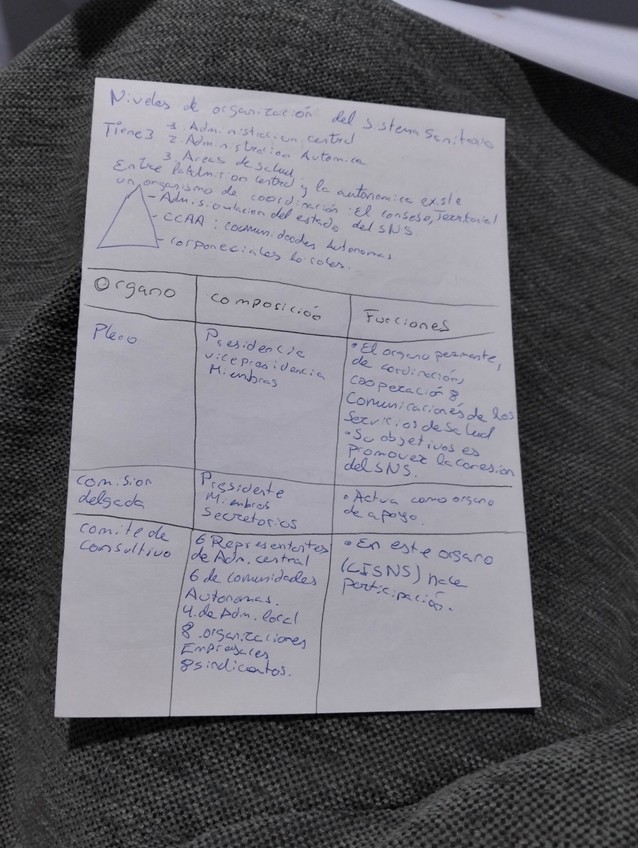 Niveles de organización del sistema Sanitario
Tiene 3 1. Administracion central
2. Administracion Automica
3. Areas de salud
Entre la Admision central y la autonomica existe
un organismo de coordinación: El consejo, Territorial
- Adm. del estado del SNS
- CCAA: comunidades Autonomas
- corporaciales locales.
Organo
Composició
Funciones
Pleno
Presidencia
vicepresidencia
Miembros
• El organo permente,
de cordinación,
cooperación &
Comunicaciones de los
Servicios de Salud
• Su objetivos es
promover la conesion
del SNS.
comision
delgada
Presidente
Miembros
Secretorios
• Actua como organo
de apoyo.
comite de
consultivo
6 Representantes
de Adm. central
6 de comunidades
Autonomas.
4. de Adm. local
8 organizaciones
Empresales
8 sindicantos.
• En este organo
(CISNS) hace
participación.